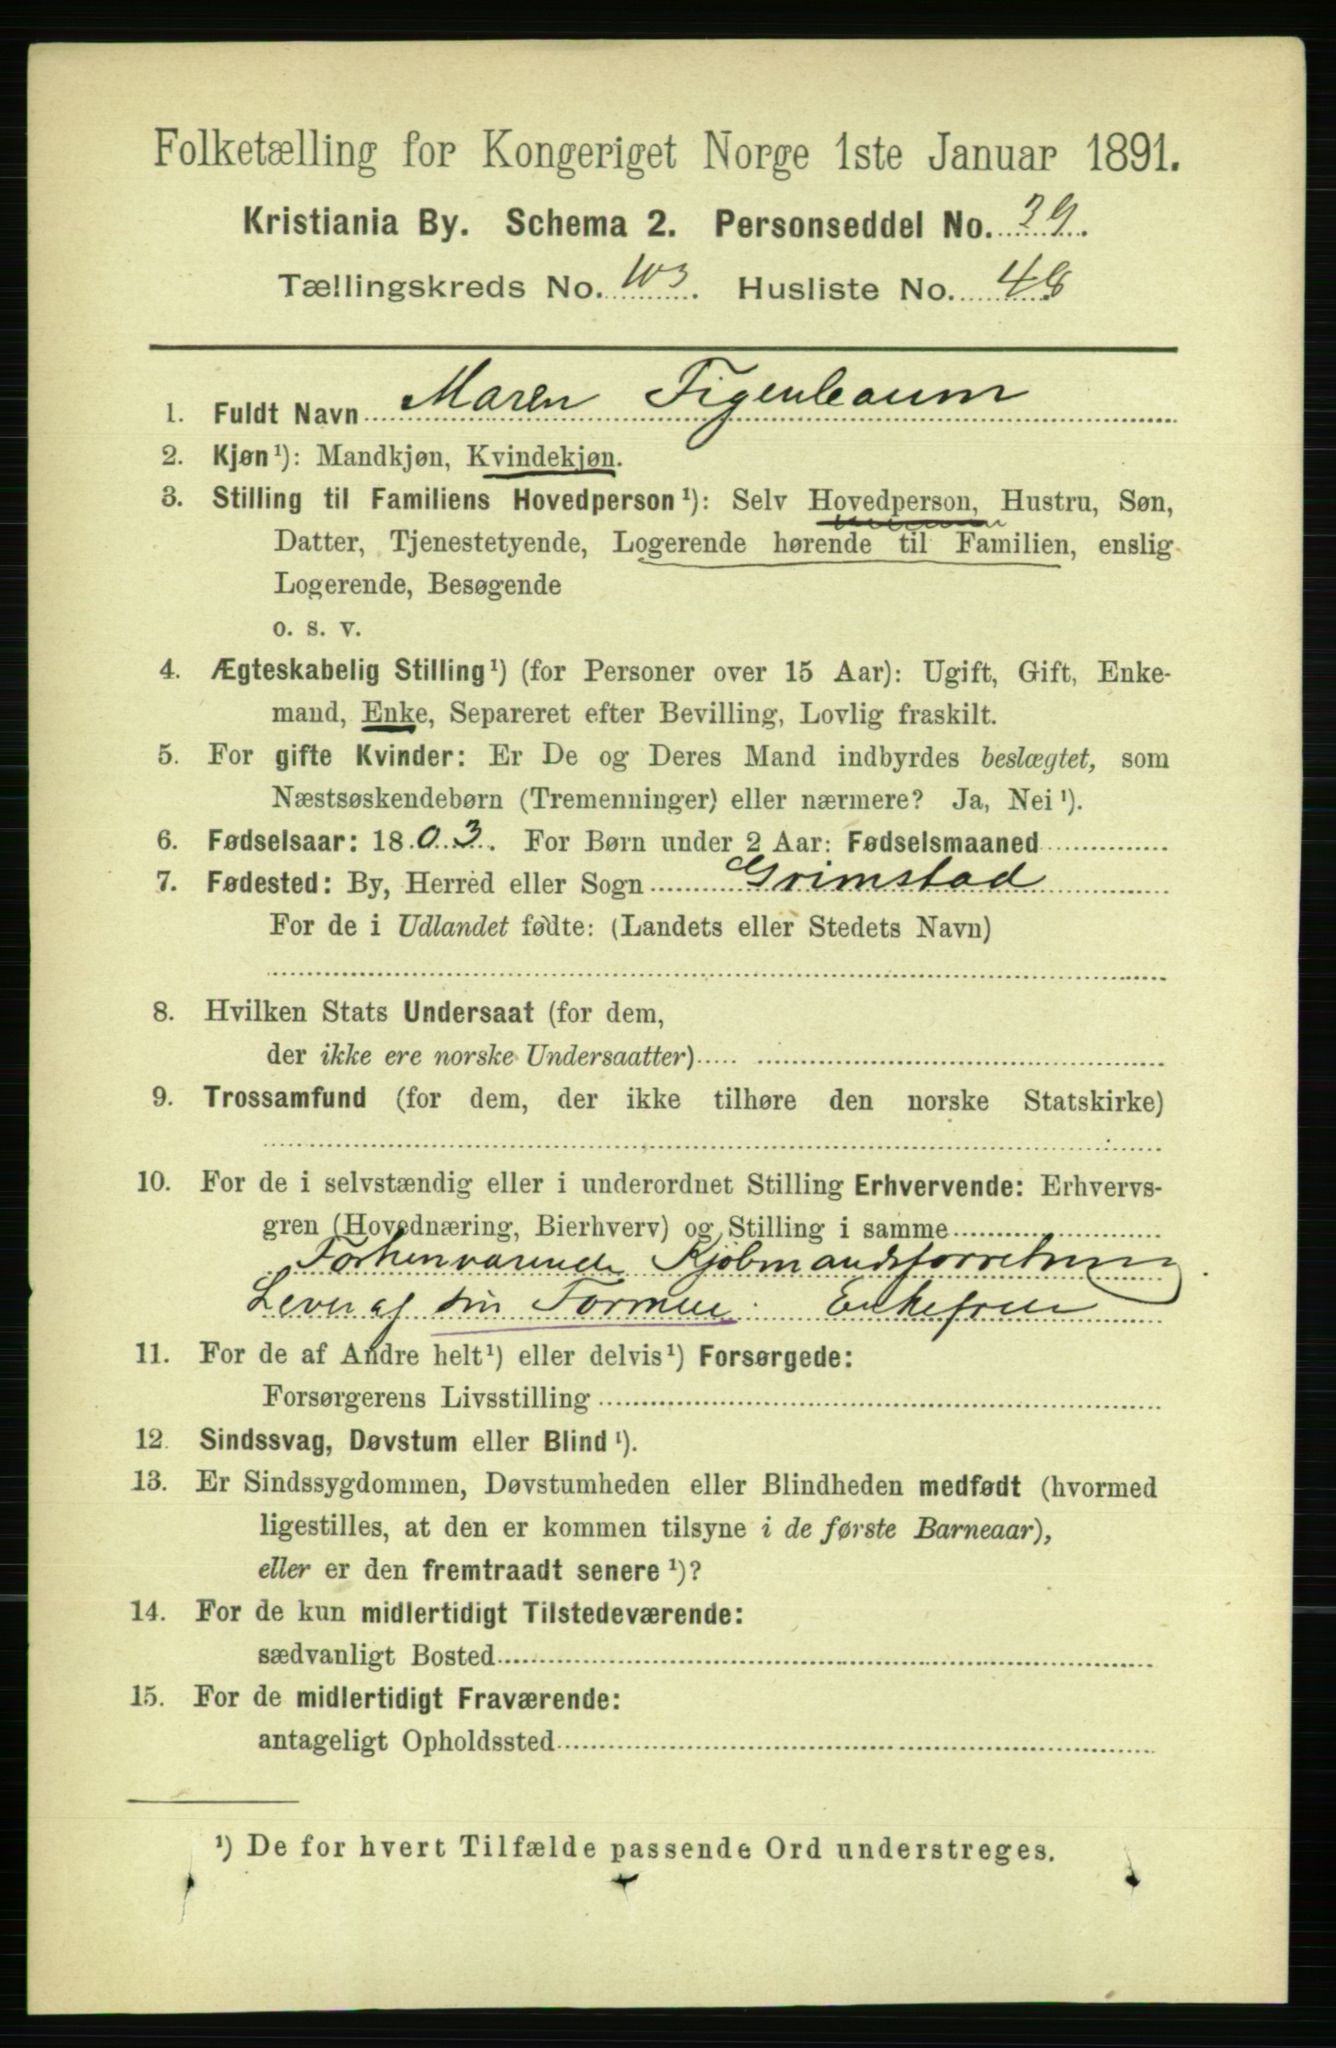 Folketælling for Kongeriget Norge 1ste Januar 1891.
Kristiania By. Schema 2. Personseddel No. 39.
Tællingskreds No. 103. Husliste No. 48
1. Fuldt Navn Maren Figenbaum
2. Kjøn¹): Mandkjøn, Kvindekjøn.
3. Stilling til Familiens Hovedperson¹): Selv Hovedperson, Hustru, Søn,
Datter, Tjenestetyende, Logerende hørende til Familien, enslig
Logerende, Besøgende
o. s. v.
4. Ægteskabelig Stilling¹) (for Personer over 15 Aar): Ugift, Gift, Enke-
mand, Enke, Separeret efter Bevilling, Lovlig fraskilt.
5. For gifte Kvinder: Er De og Deres Mand indbyrdes beslægtet, som
Næstsøskendebørn (Tremenninger) eller nærmere? Ja, Nei¹).
6. Fødselsaar: 1803. For Børn under 2 Aar: Fødselsmaaned
7. Fødested: By, Herred eller Sogn Grimstad
For de i Udlandet fødte: (Landets eller Stedets Navn)
8. Hvilken Stats Undersaat (for dem,
der ikke ere norske Undersaatter)
9. Trossamfund (for dem, der ikke tilhøre den norske Statskirke)
10. For de i selvstændig eller i underordnet Stilling Erhvervende: Erhvervs-
gren (Hovednæring, Bierhverv) og Stilling i samme
Forhenværende Kjøbmandsforretning
Lever af sin Formue. Enkefrue
11. For de af Andre helt¹) eller delvis¹) Forsørgede:
Forsørgerens Livsstilling
12. Sindssvag, Døvstum eller Blind¹).
13. Er Sindssygdommen, Døvstumheden eller Blindheden medfødt (hvormed
ligestilles, at den er kommen tilsyne i de første Barneaar),
eller er den fremtraadt senere¹)?
14. For de kun midlertidigt Tilstedeværende:
sædvanligt Bosted
15. For de midlertidigt Fraværende:
antageligt Opholdssted
¹) De for hvert Tilfælde passende Ord understreges.